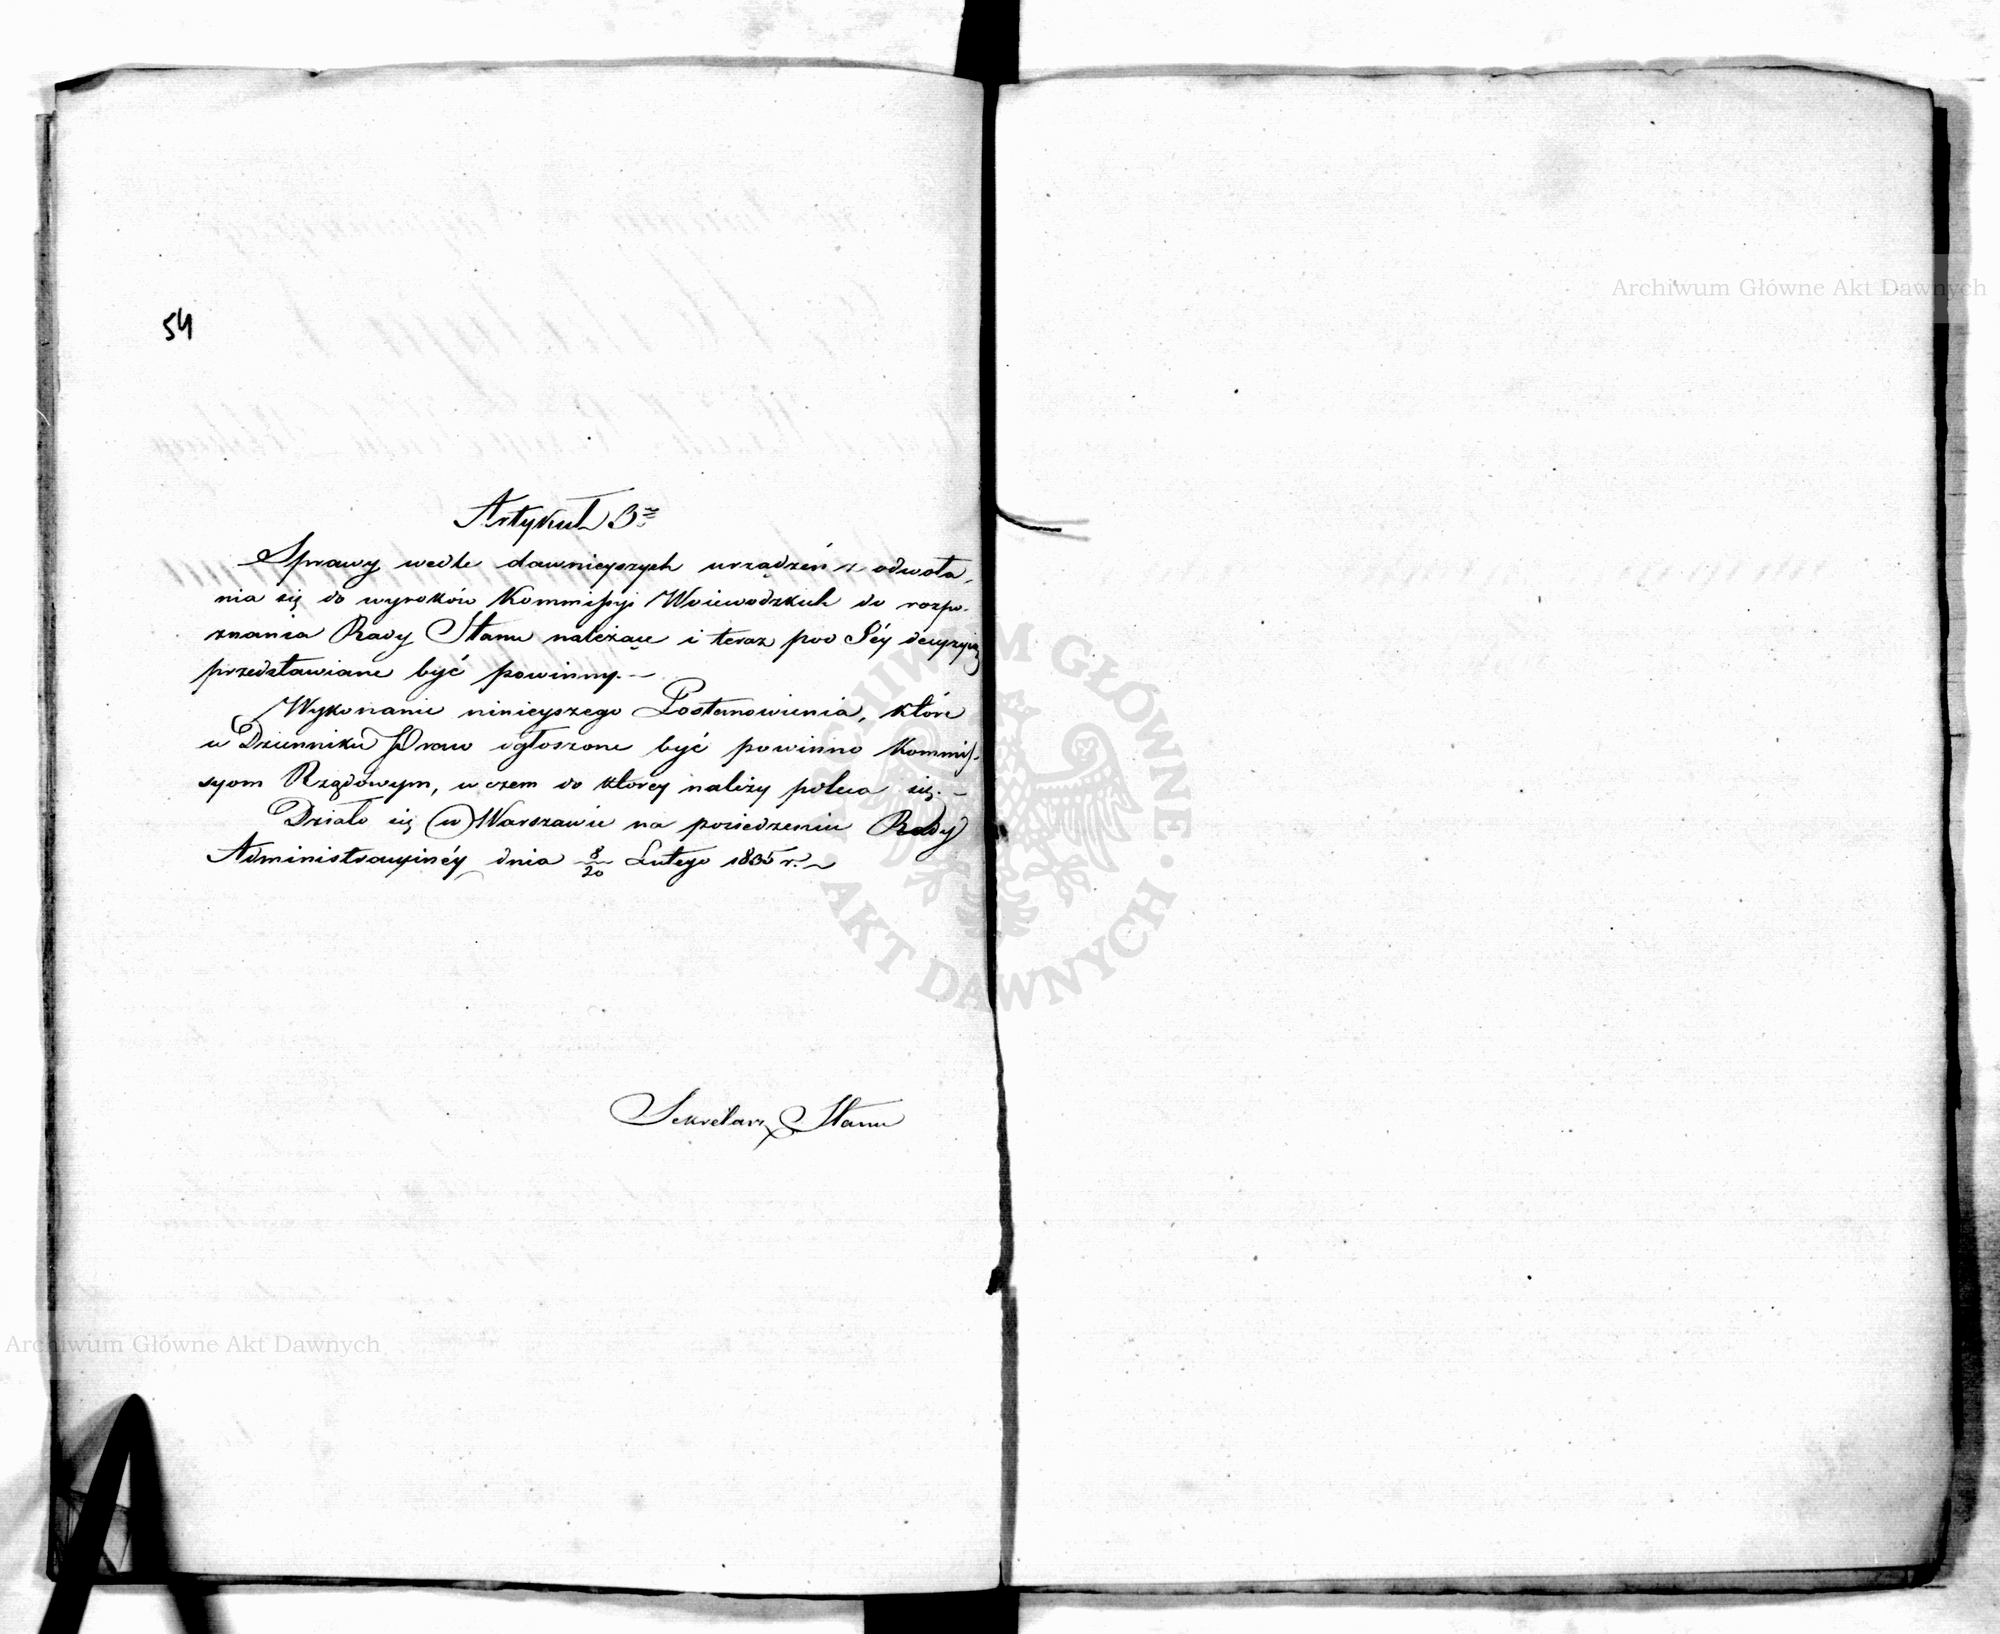 54
Artykuł 3
Sprawy wedle dawnieyszych urządzeń z odwoła-
nia się do wyroków Kommissyi Woiewodzkich do rozpo-
znania Rady Stanu należące i teraz pod Jéy decyzyią
przedstawiane być powinny. —
Wykonanie ninieyszego Postanowienia, które
w Dzienniku Praw ogłoszone być powinno Kommis-
syom Rządowym, w czem do którey należy poleca się. —
Działo się w Warszawie na posiedzeniu Rady
Administracyinéy dnia 8/20 Lutego 1835 r.
Sekretarz Stanu
Archiwum Główne Akt Dawnych
Archiwum Główne Akt Dawnych
ARCHIWUM GŁÓWNE · AKT DAWNYCH ·